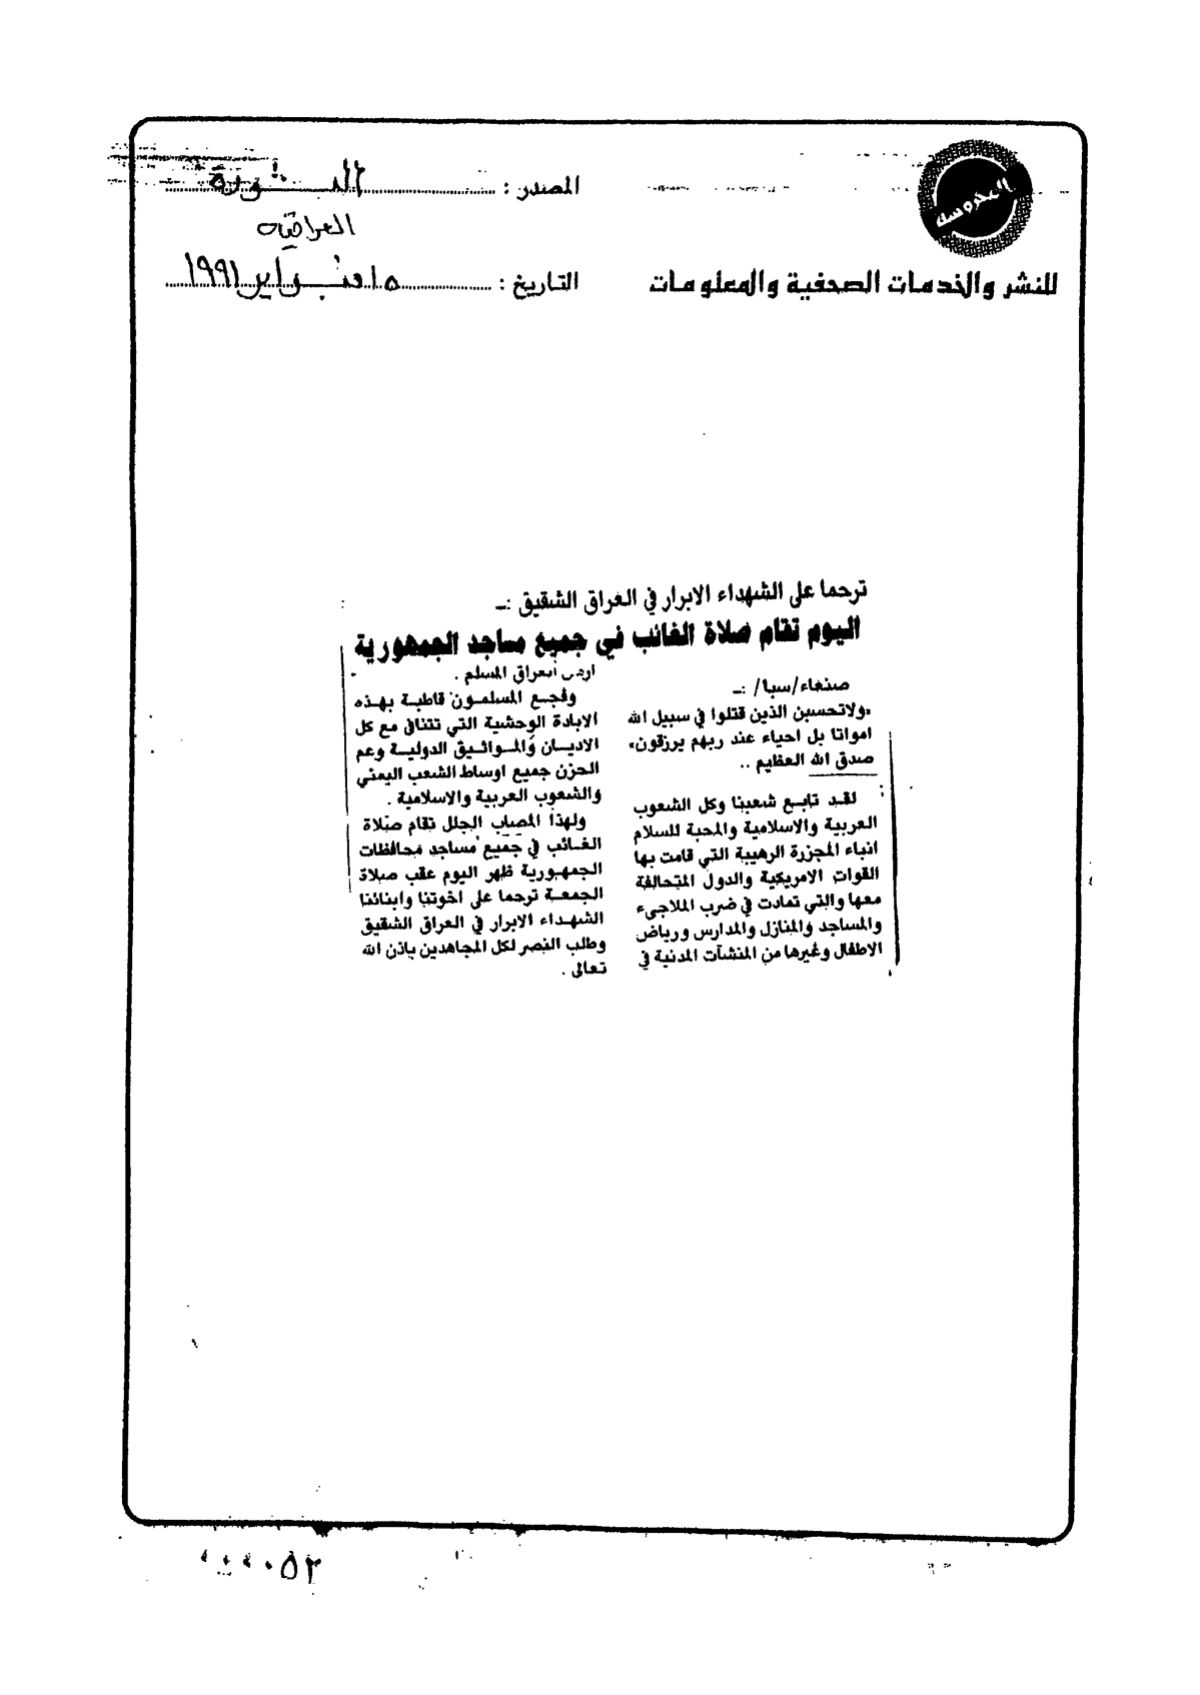 المحروسة
للنشر والخدمات الصحفية والمعلومات
المصدر : الثورة
العراقية
التاريخ : ١٥ فبراير ١٩٩١
ترحما على الشهداء الابرار في العراق الشقيق :ـ
اليوم تقام صلاة الغائب في جميع مساجد الجمهورية
صنعاء/سبا/ :ـ
«ولاتحسبن الذين قتلوا في سبيل الله
امواتا بل احياء عند ربهم يرزقون»
صدق الله العظيم ..
لقد تابع شعبنا وكل الشعوب
العربية والاسلامية والمحبة للسلام
انباء المجزرة الرهيبة التي قامت بها
القوات الامريكية والدول المتحالفة
معها والتي تمادت في ضرب الملاجىء
والمساجد والمنازل والمدارس ورياض
الاطفال وغيرها من المنشآت المدنية في
ارض العراق المسلم .
وفجع المسلمون قاطبة بهذه
الابادة الوحشية التي تتنافى مع كل
الاديان والمواثيق الدولية وعم
الحزن جميع اوساط الشعب اليمني
والشعوب العربية والاسلامية .
ولهذا المصاب الجلل تقام صلاة
الغائب في جميع مساجد محافظات
الجمهورية ظهر اليوم عقب صلاة
الجمعة ترحما على اخوتنا وابنائنا
الشهداء الابرار في العراق الشقيق
وطلب النصر لكل المجاهدين باذن الله
تعالى .